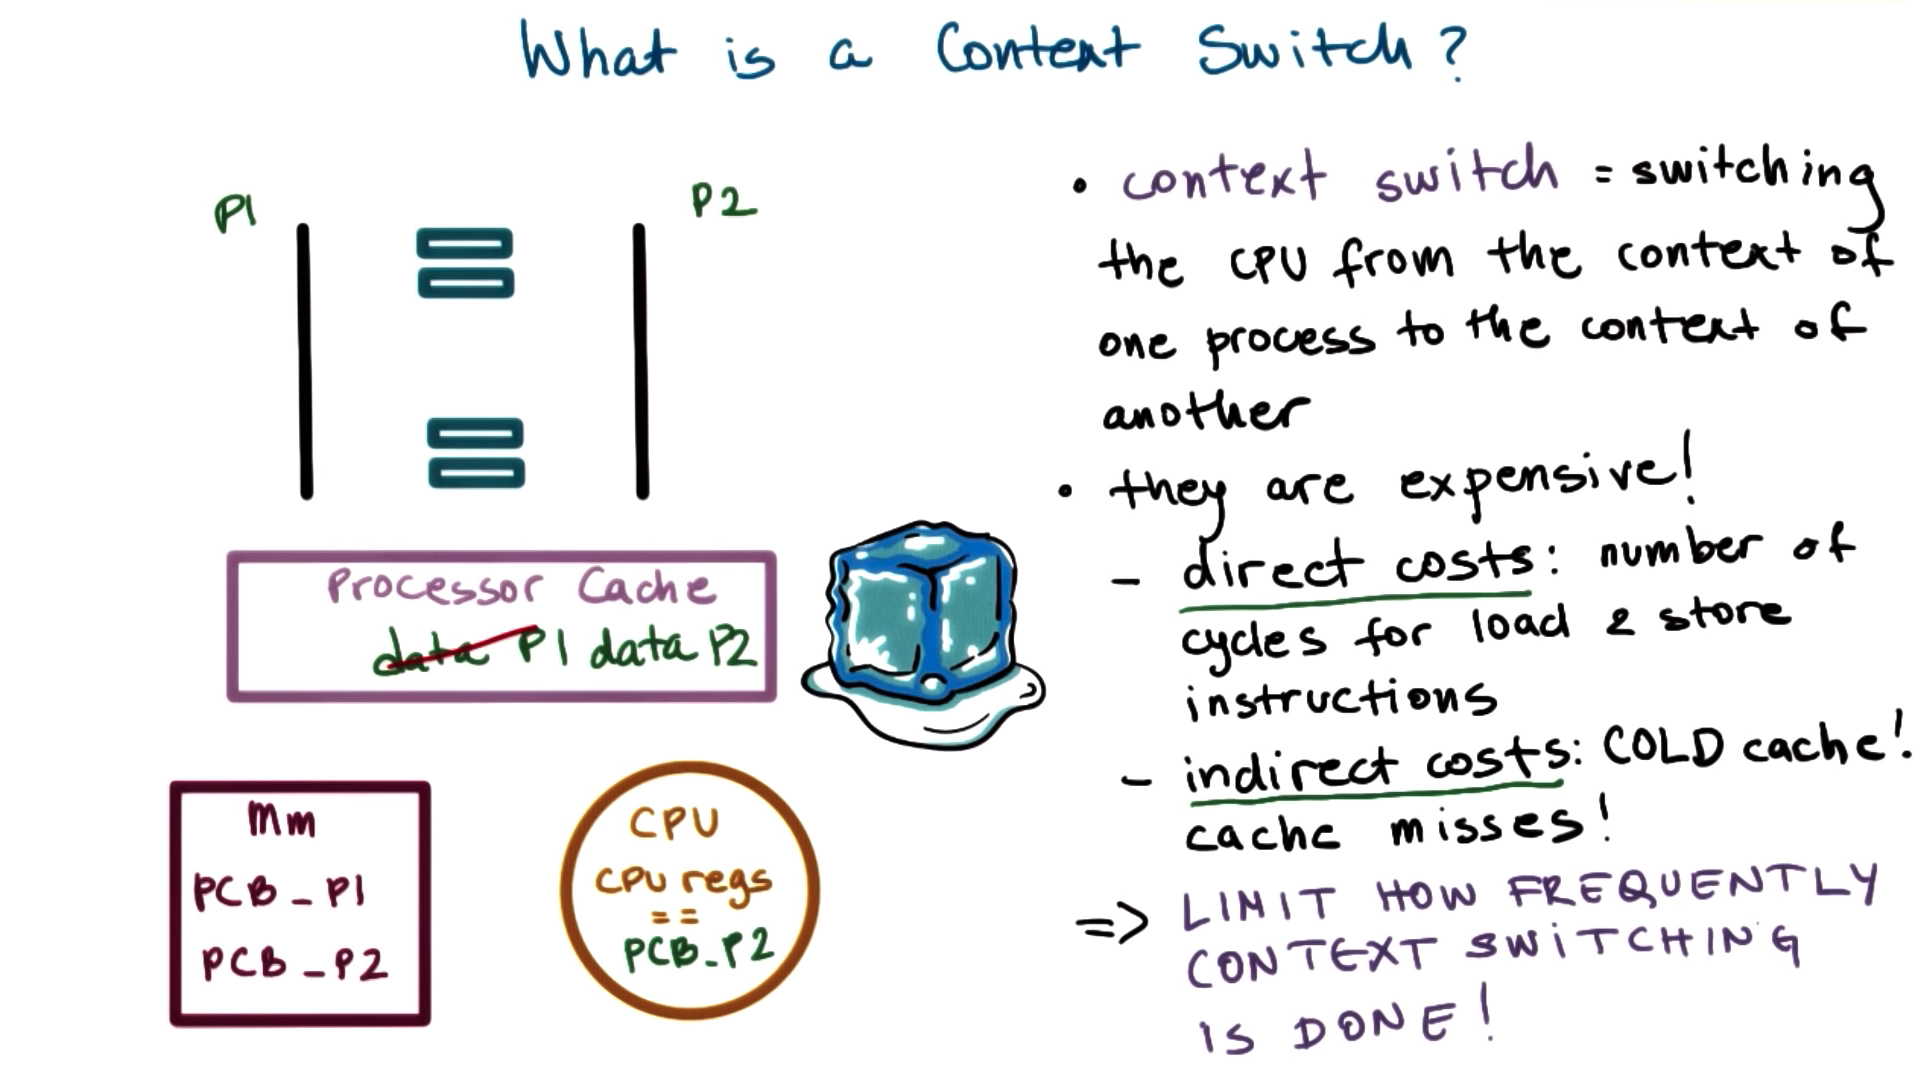 What is a Context Switch?
P1
P2
Processor Cache
data P1 data P2
Mm
PCB_P1
PCB_P2
CPU
CPU regs
==
PCB_P2
• context switch = switching
the CPU from the context of
one process to the context of
another
• they are expensive!
- direct costs: number of
cycles for load & store
instructions
- indirect costs: COLD cache!
cache misses!
=> LIMIT HOW FREQUENTLY
CONTEXT SWITCHING
IS DONE!